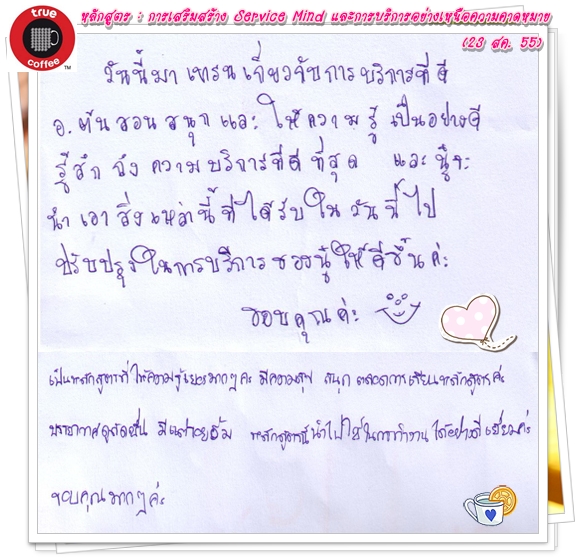 true
coffee
TM
หลักสูตร : การเสริมสร้าง Service Mind และการบริการอย่างเหนือความคาดหมาย
(23 สค. 55)
วันนี้มาเทรนเกี่ยวกับการบริการที่ดี
อ.ต้นสอนสนุกและให้ความรู้เป็นอย่างดี
รู้สึกถึงความบริการที่ดีที่สุด และนู๋จะ
นำเอาสิ่งเหล่านี้ที่ได้รับในวันนี้ไป
ปรับปรุงในการบริการของนู๋ให้ดีขึ้นค่ะ
ขอบคุณค่ะ
เป็นหลักสูตรที่ให้ความรู้เยอะมากๆค่ะ มีความสุข สนุก ตลอดการเรียนหลักสูตรค่ะ
บรรยากาศดูสดชื่น มีแต่รอยยิ้ม หลักสูตรนี้นำไปใช้ในการทำงานได้อย่างดีเยี่ยมค่ะ
ขอบคุณมากๆค่ะ